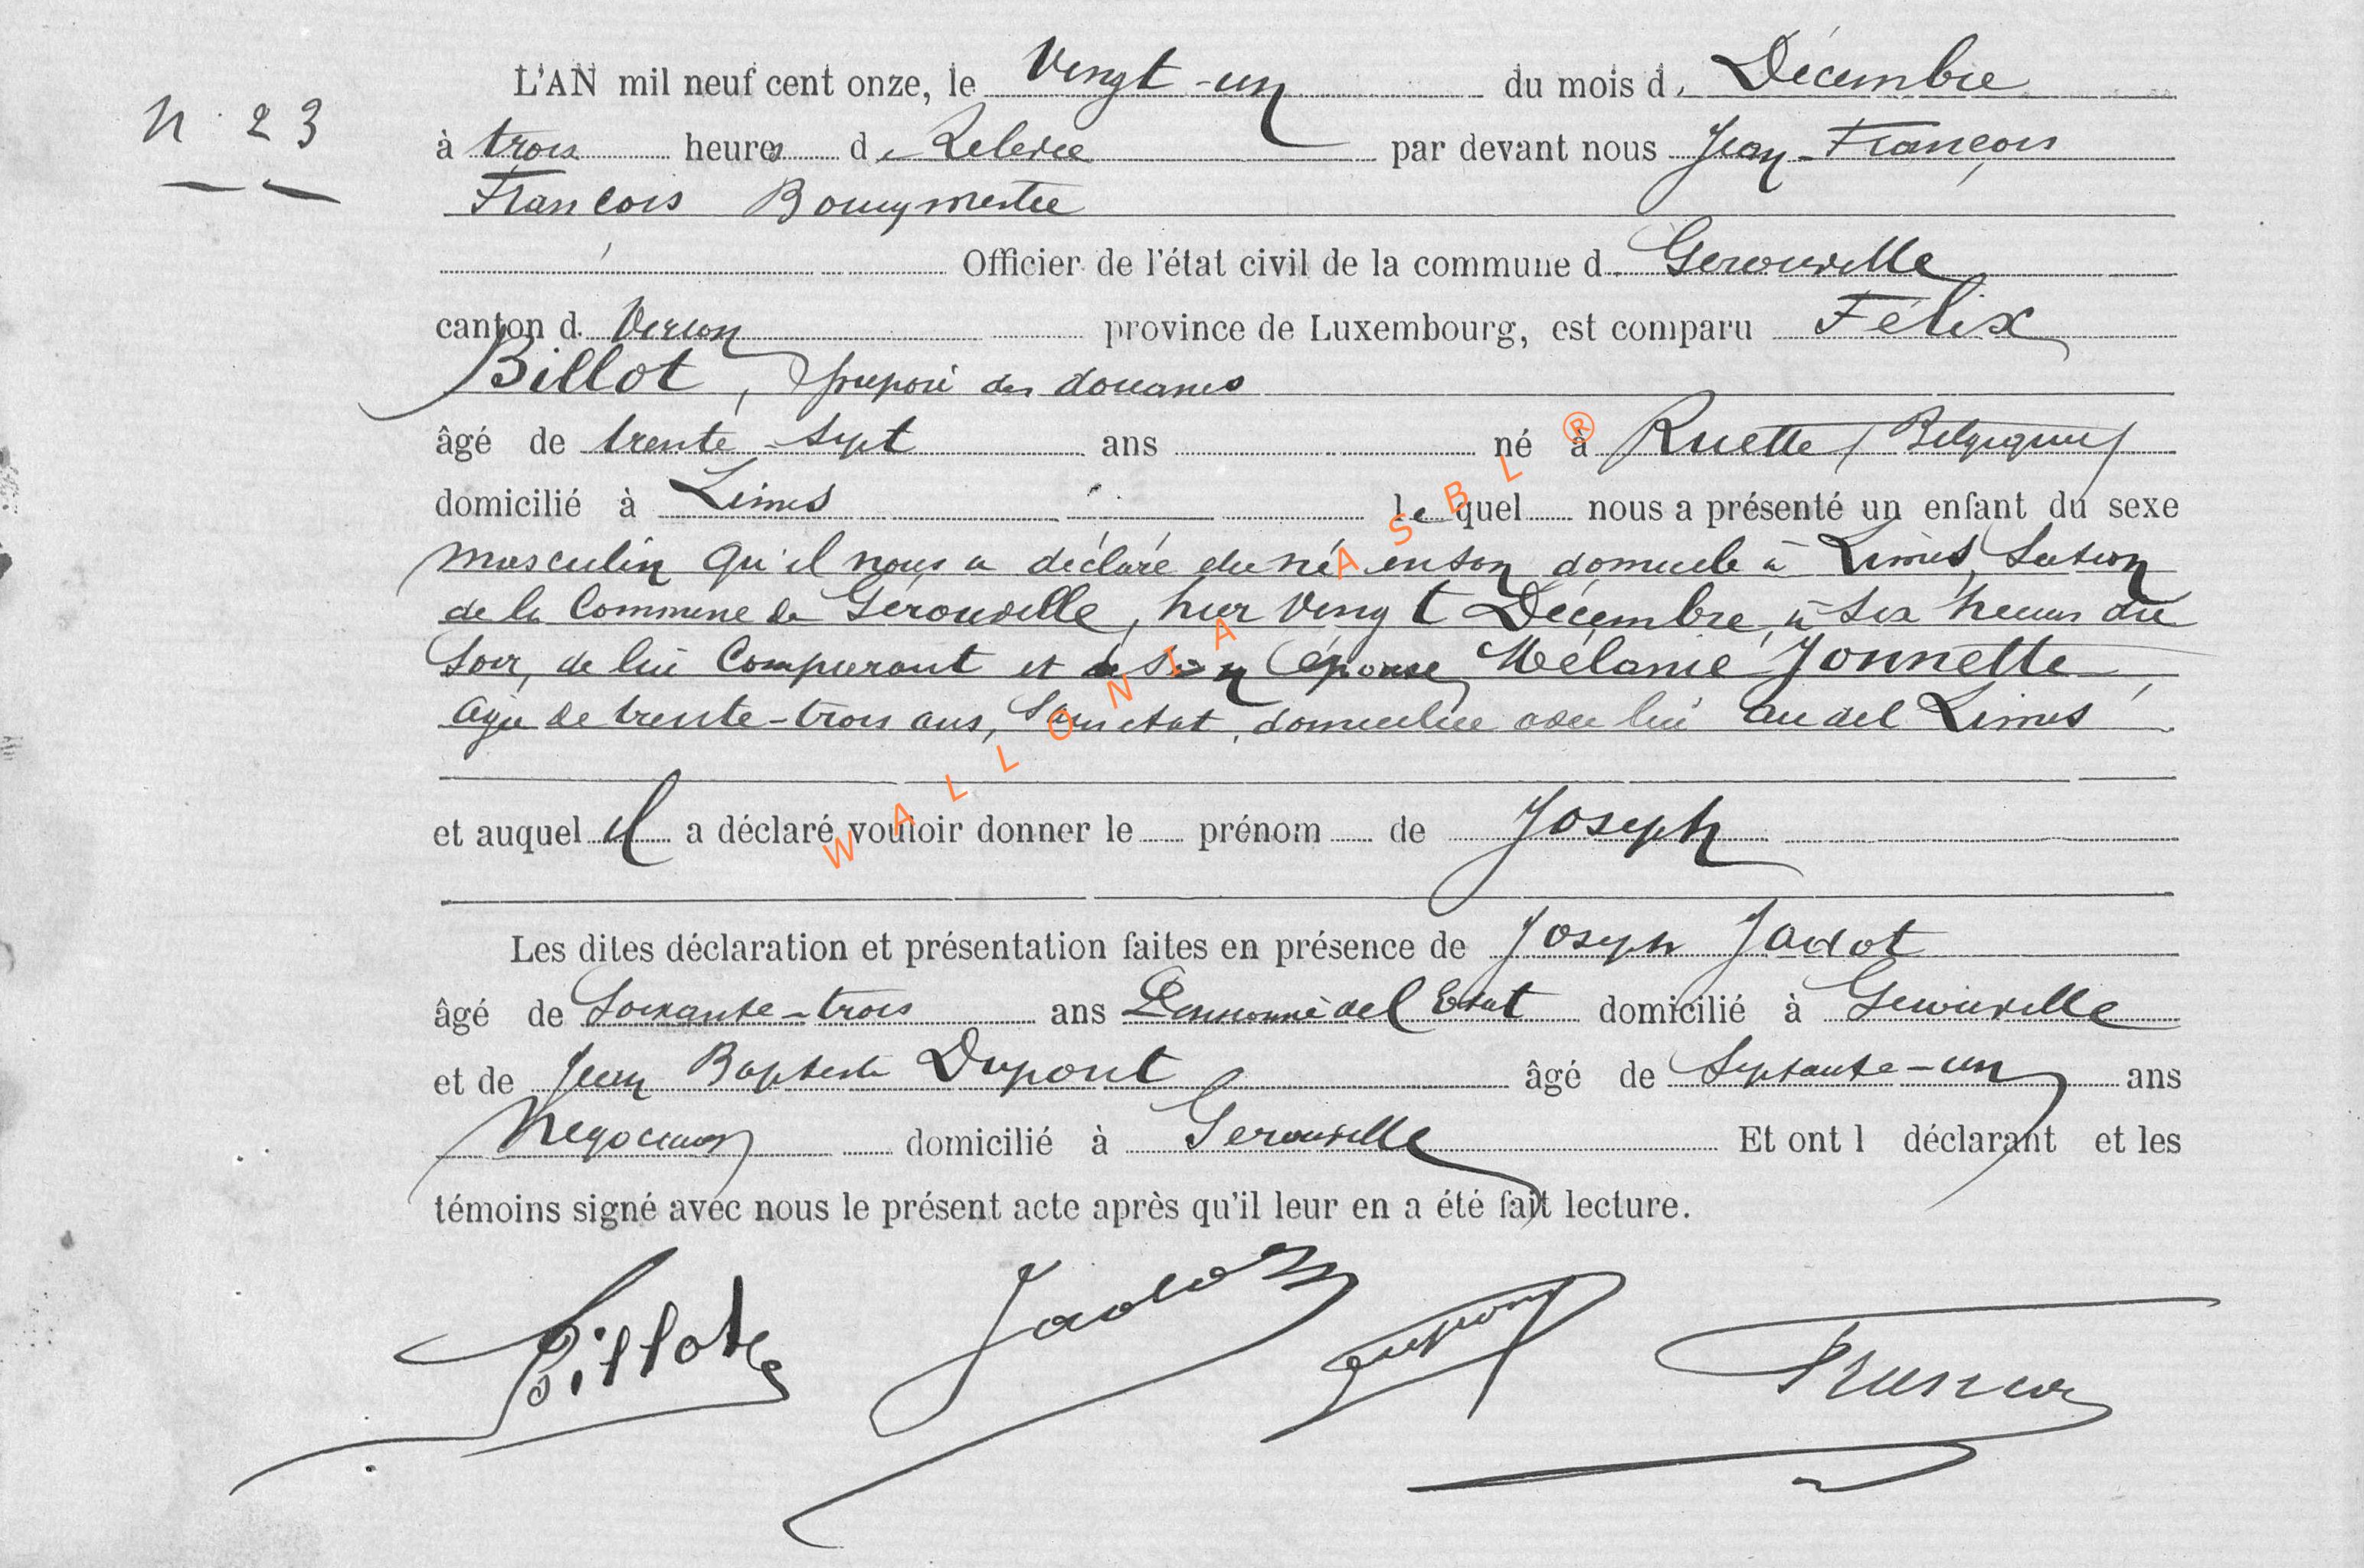 N° 23
L'AN mil neuf cent onze, le Vingt-un du mois de Décembre
à trois heures de Relevée par devant nous Jean-François
François Bourgmestre
Officier de l'état civil de la commune de Gérouville
canton de Virton province de Luxembourg, est comparu Félix
Billot, préposé des douanes
âgé de trente-sept ans né à Ruette (Belgique)
domicilié à Limes lequel nous a présenté un enfant du sexe
masculin qu'il nous a déclaré être né en son domicile à Limes, Section
de la Commune de Gérouville, hier Vingt Décembre, à six heures du
soir, de lui Comparant et de son épouse Mélanie Jonnette,
âgée de trente-trois ans, Sans état, domiciliée avec lui au dit Limes
et auquel il a déclaré vouloir donner le prénom de Joseph
Les dites déclaration et présentation faites en présence de Joseph Jadot
âgé de Soixante-trois ans Pensionné de l'Etat domicilié à Gérouville
et de Jean Baptiste Dupont âgé de Septante-un ans
Négociant domicilié à Gérouville Et ont l déclarant et les
témoins signé avec nous le présent acte après qu'il leur en a été fait lecture.
Billot Jadot Dupont
WALLONIA ASBL ®